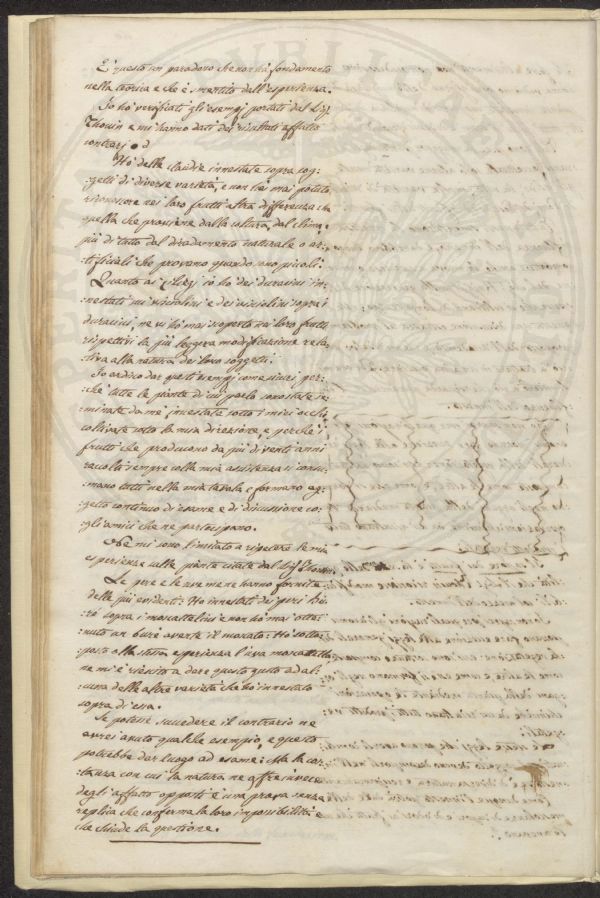 E' questo un paradosso che non ha fondamento
nella teoria e che è smentito dall'esperienza.
Io ho verificati gli esempj portati dal Sig.
Thouin e mi hanno dati dei risultati affatto
contrarj.
Ho delle claudie innestate sopra sog-
-getti di diverse varietà, e non ho mai potuto
riconoscere nei loro frutti altra differenza che
quella che proviene dalla coltura, dal clima,
più di tutto del diradamento naturale o ar-
-tificiali che provano quando sono piccoli.
Quanto ai Ciliegi io ho dei duracini in-
-nestati su visciolini e dei visciolini sopra i
duracini, ne vi ho mai scoperto nei loro frutti
rispettivi la più leggera modificazione rela-
-tiva alla natura dei loro soggetti.
Io ardisco dar questi esempj come sicuri per-
-chè tutte le piante di cui parlo sono state se-
-minate da me, innestate sotto i miei occhi,
coltivate sotto la mia direzione, e perchè i
frutti che producono da più di venti anni
raccolti sempre colla mia assistenza si consu-
-mano tutti nella mia tavola e formano og-
-getto continuo di esame e di discussione co-
-gli amici che ne partecipano.
Ne mi sono limitato a ripetere le mie
esperienze sulle piante citate dal Sig. Thouin.
Le pere e le uve me ne hanno fornite
delle più evidenti: Ho innestati dei peri bu-
-rè sopra i moscatellini e non ho mai otte-
-nuto un burè avente il moscato: Ho sotto-
-posto alla stessa esperienza l'uva moscatella,
ne mi è riescito a dare questo gusto ad al-
-cuna delle altre varietà che ho innestato
sopra di essa.
Se potesse succedere il contrario ne
avrei avuto qualche esempio, e questo
potrebbe dar luogo ad esame: Ma la cos-
-tanza con cui la natura ne offre invece
degli affatto opposti è una prova senza
replica che conferma la loro impossibilità e
che chiude la questione.